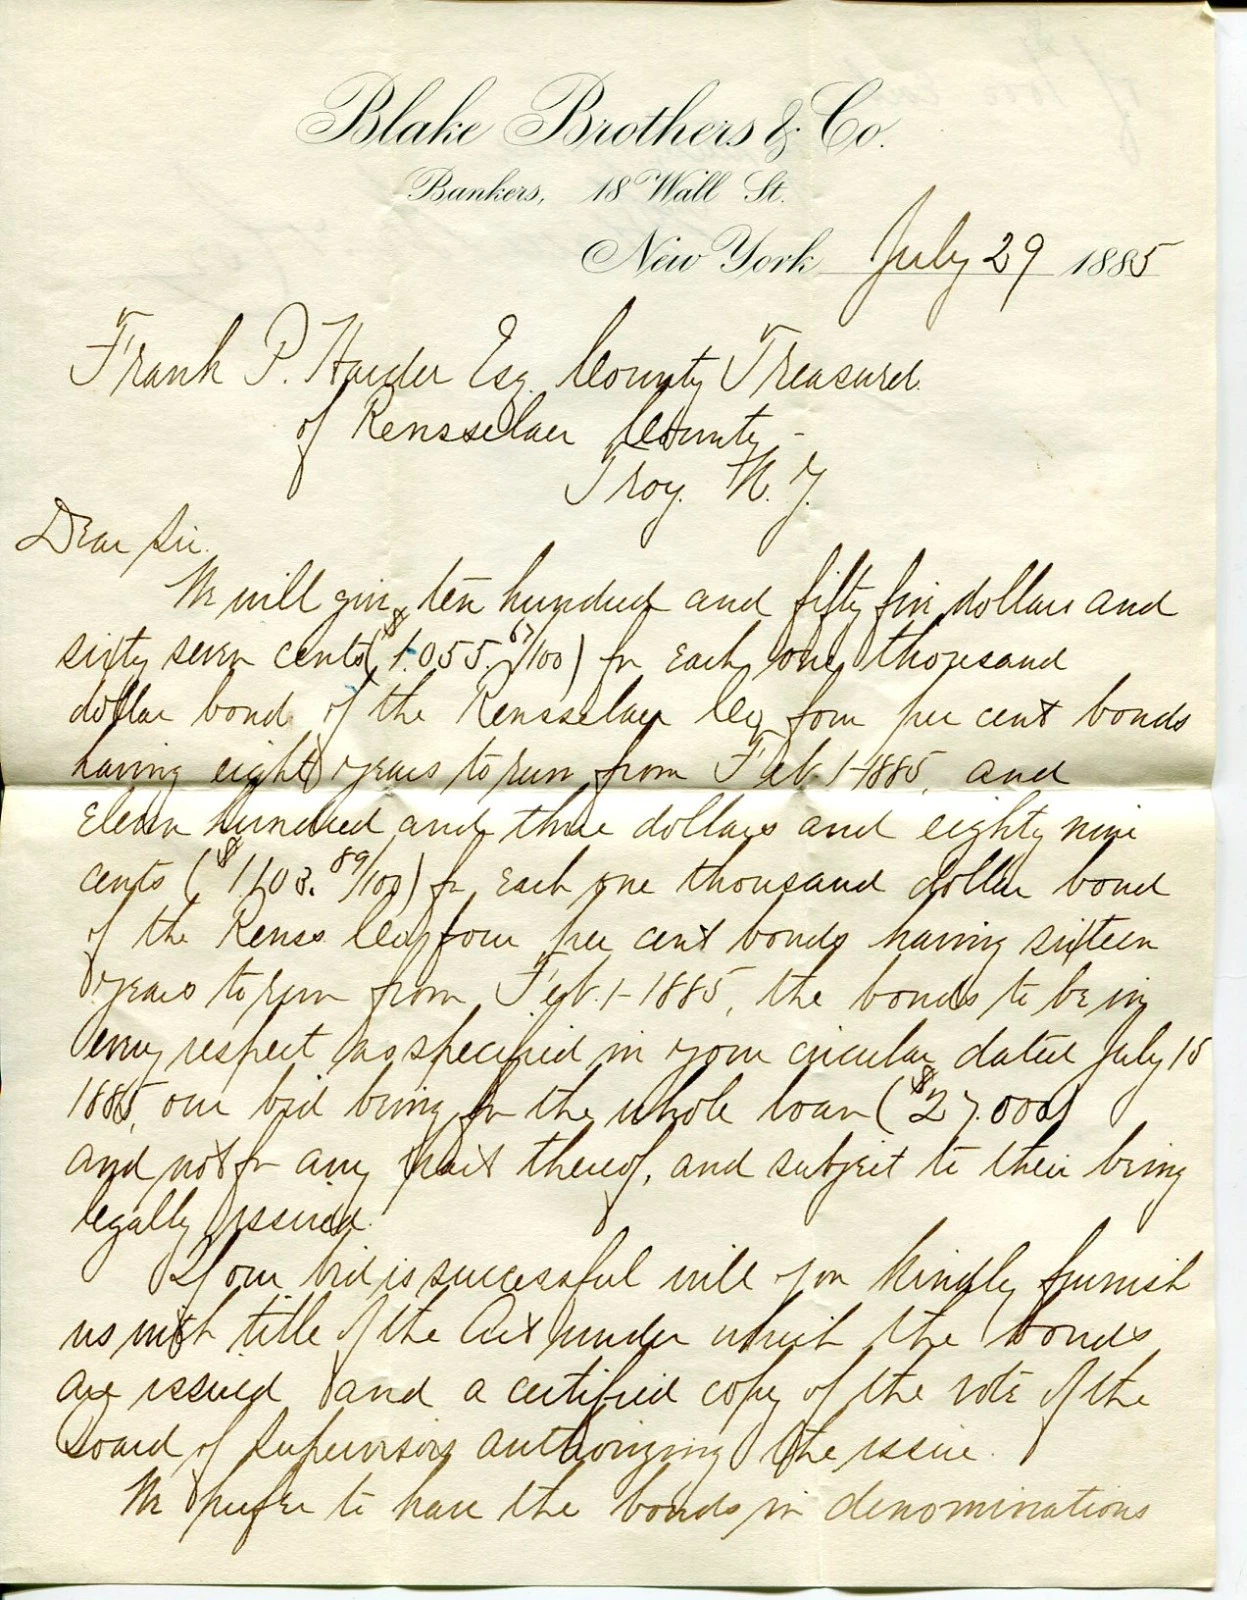 Blake Brothers & Co.
Bankers, 18 Wall St.
New York July 29 1885
Frank P. Harder Esq. County Treasurer
of Rensselaer County -
Troy. N. Y.
Dear Sir.
We will give ten hundred and fifty five dollars and
sixty seven cents ($1.055.67/100) for each one thousand
dollar bond of the Rensselaer Coy four per cent bonds
having eight years to run from Feb. 1-1885, and
Eleven hundred and three dollars and eighty nine
cents ($1103.89/100) for each one thousand dollar bond
of the Renss Coy four per cent bonds having sixteen
years to run from Feb. 1-1885, the bonds to be in
every respect as specified in your circular dated July 15
1885, our bid being for the whole loan ($27.000)
and not for any part thereof, and subject to their being
legally issued.
If our bid is successful will you kindly furnish
us with title of the Act under which the bonds
are issued and a certified copy of the vote of the
Board of Supervisors authorizing the issue.
We prefer to have the bonds in denominations